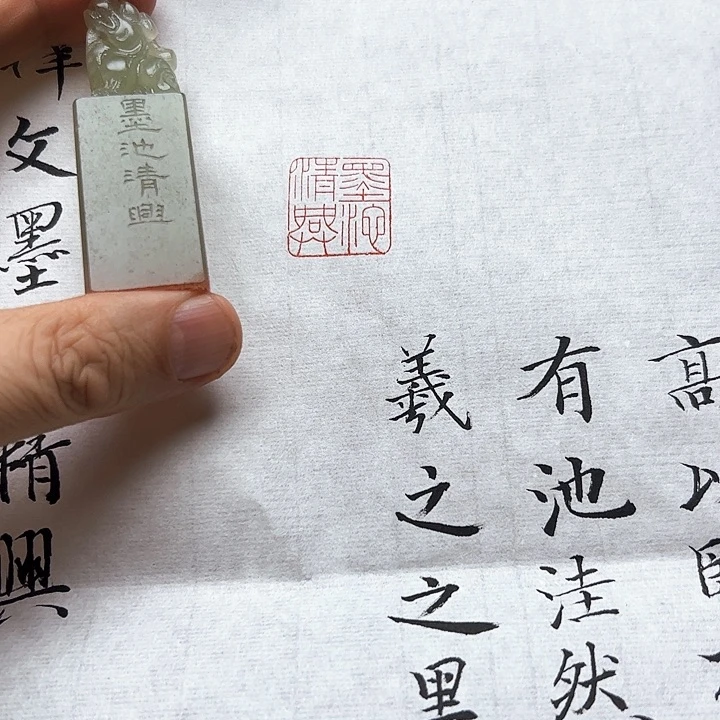 高以臨
有池洼然
羲之之墨
墨池
清興
墨池清興
文墨
清興